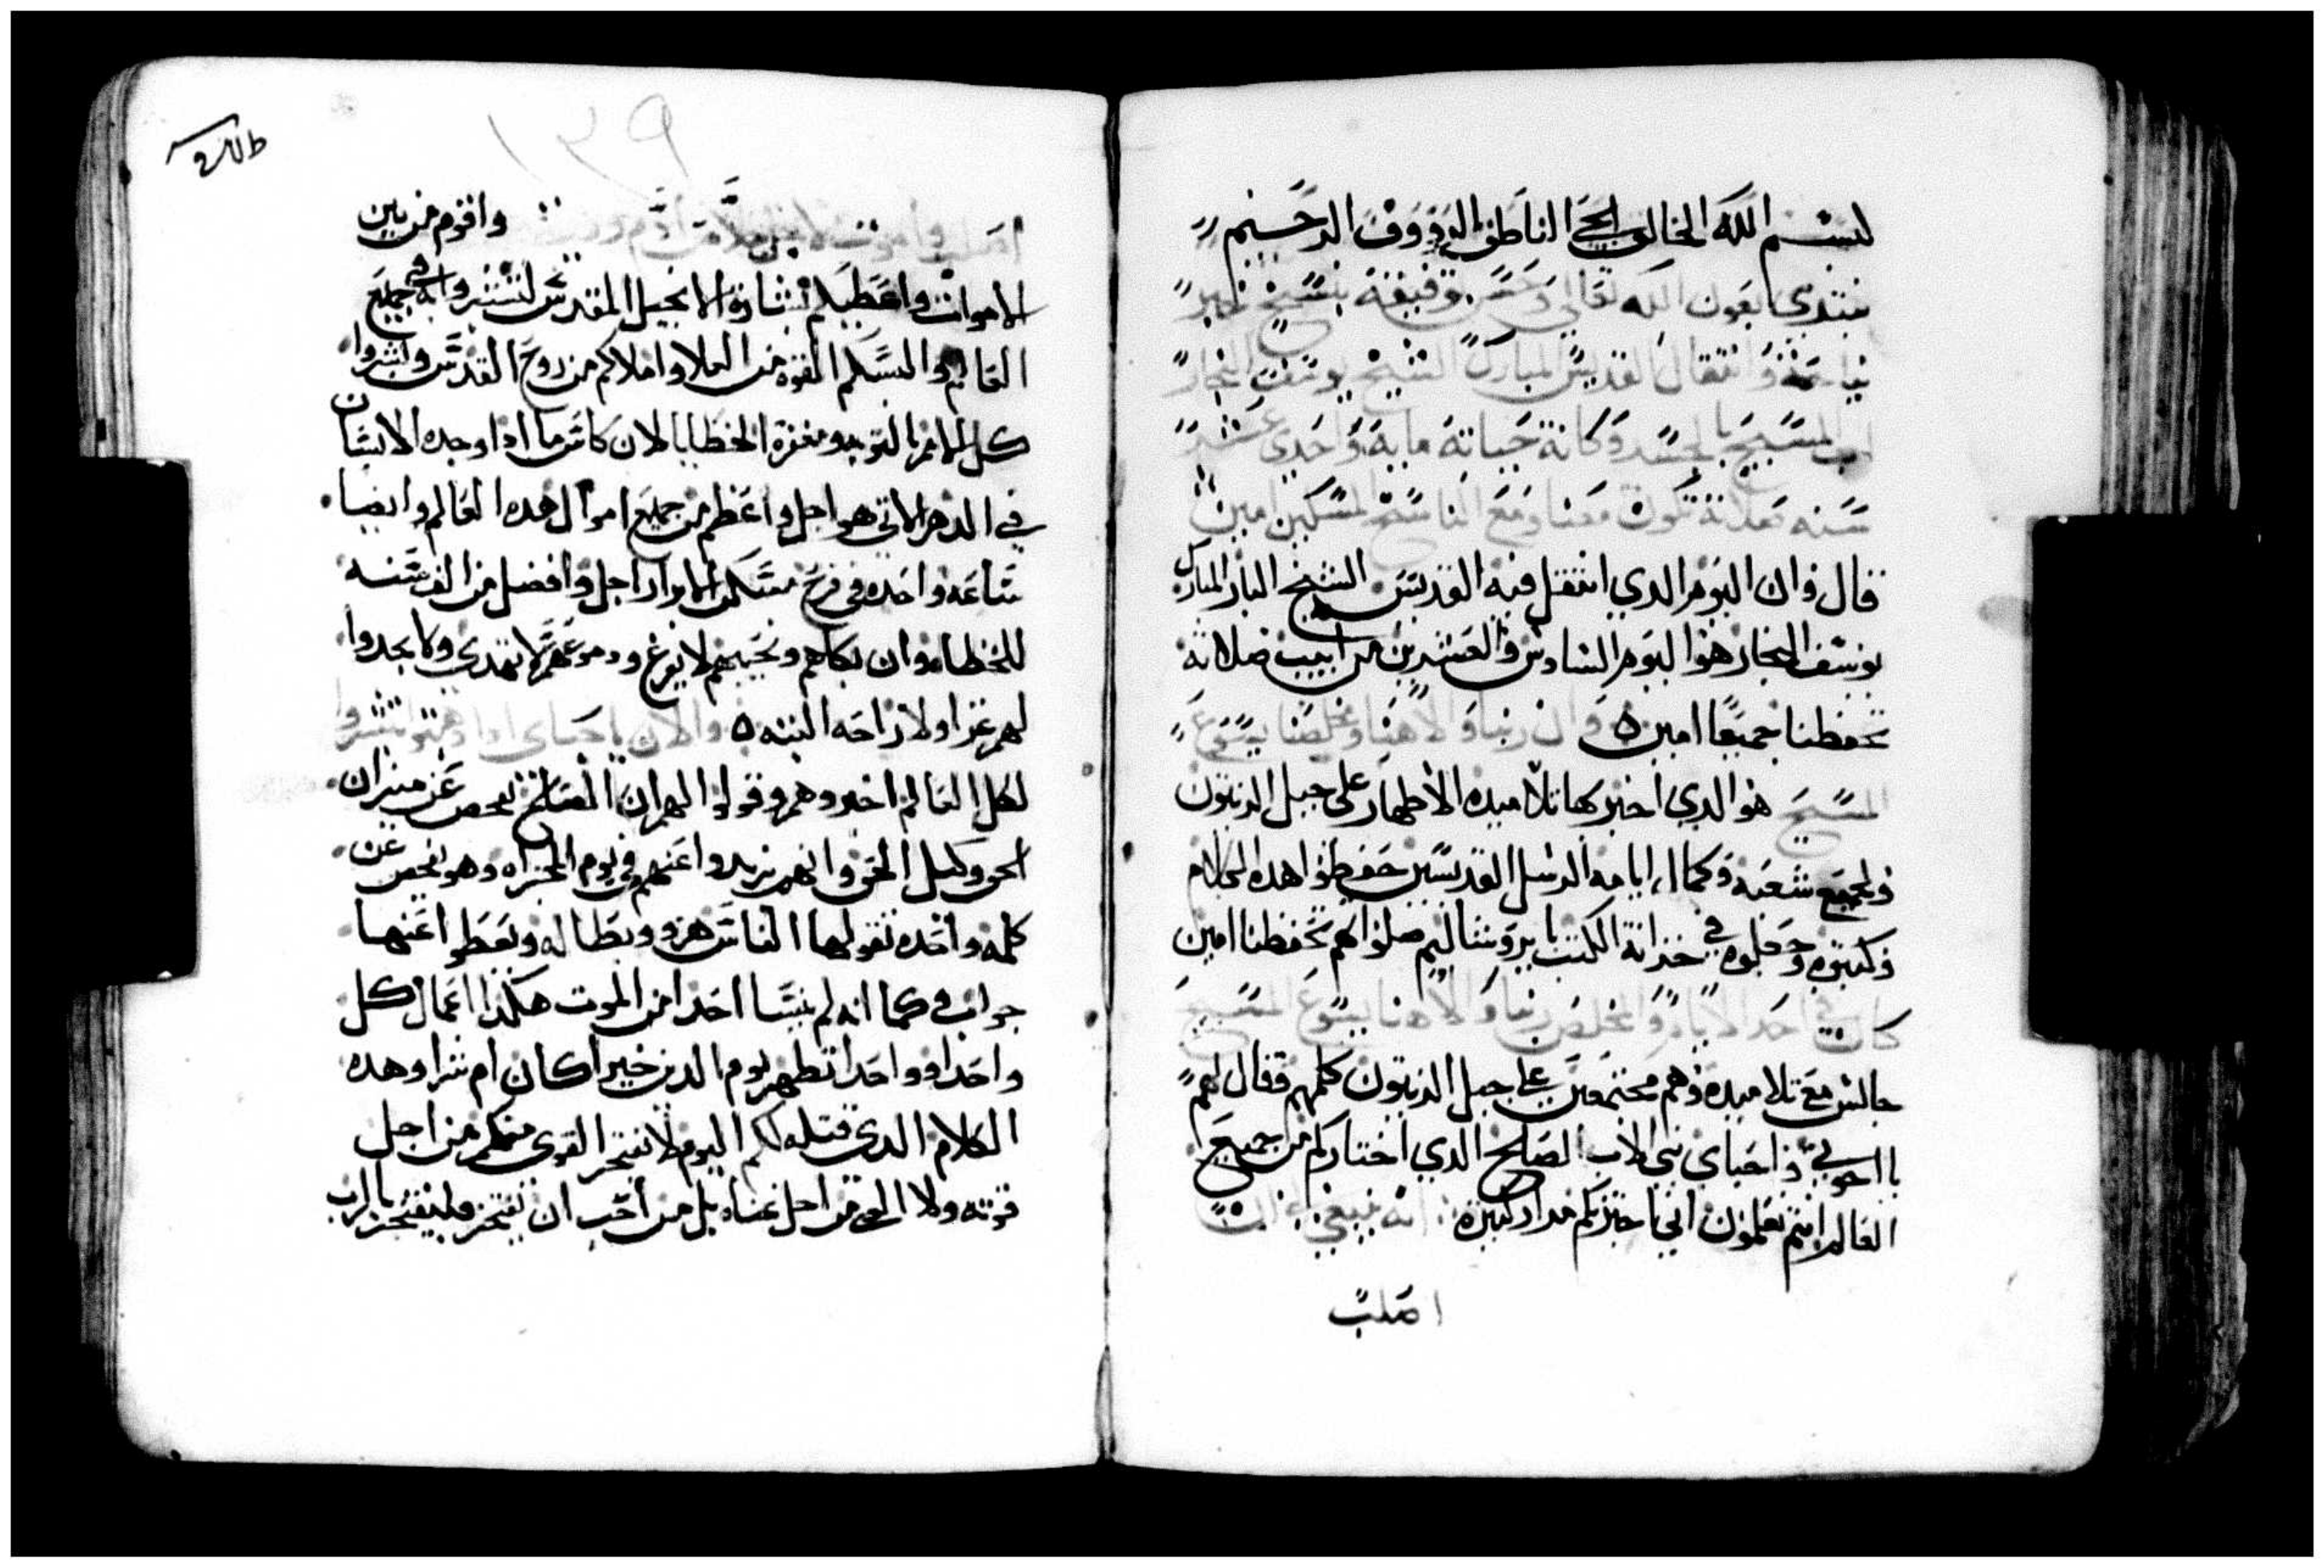 بسم الله الخالق الحي الناطق الرووف الرحيم
نبتدي بعون الله تعالي وحسن توفيقه بنسخ خبر
نياحة وانتقال القديس المبارك الشيخ يوسف النجار
اب المسيح بالجسد وكانة حياته ماية واحدى عشر
سنه صلاته تكون معنا ومع الناسخ المسكين امين
قال وان اليوم الدي انتقل فيه القديس الشيخ البار المبارك
يوسف النجار هوا اليوم السادس والعشرين من ابيب صلاته
تحفظنا جميعا امين وان ربنا والاهنا ومخلصنا يسوع
المسيح هو الدي اخبر بها تلاميده الاطهار على جبل الزيتون
ولجميع شعبه وكمال ايامه الرسل القديسين حفظوا هده الكلام
وكتبوه وجعلوه في خزانة الكتب بايروشاليم صلواتهم تحفظنا امين
كان في احد الايام والمخلص ربنا والاهنا يسوع المسيح
جالس مع تلاميده وهم مجتمعين على جبل الزيتون كلهم فقال لهم
يا اخوتي واحباي بني الاب الصالح الدي اختاركم من جميع
العالم انتم تعلمون اني اخبرتكم مرار كتيره انه ينبغي ان
اصلب
١٣٩
اصلب واموت من بين
الاموات واعطيكم بشارة الانجيل المقدس لتبشروا به في جميع
العالم والبسكم القوه من العلا واملاكم من روح القدس وابشروا
كل الامم بالتوبه ومغفرة الخطايا لان كاس ما ادا وجده الانسان
في الدهر الاتي هو اجل واعظم من جميع اموال هده العالم وايضا
ساعه واحده في فرح مسكن الابرار اجل وافضل من الف سنه
للخطاه وان بكاهم ونحيبهم لا يفرغ ودموعهم لا تهدي ولا يجدوا
لهم عزا ولا راحه البته والان يا احباي ادا مضيتم بشروا
لكل العالم اخبروهم وقولوا لهم ان المصالح يفحص عن ميزان
الحق وكيل الحق وانهم يزيدوا عنهم في يوم الجزاه وهو يفحص عن
كلمه واحده تقولها الناس هزو وبطاله ويعطوا عنها
جواب في كما انه لم ينسا احدا من الموت هكدا اعمال كل
واحدا وواحدا تظهر يوم الدين خيرا كان ام شرا وهده
الكلام الدي قتله لكم اليوم لا يفتخر القوي منكم من اجل
قوته ولا الغني من اجل غناه بل من احب ان يفتخر فليفتخر بالرب